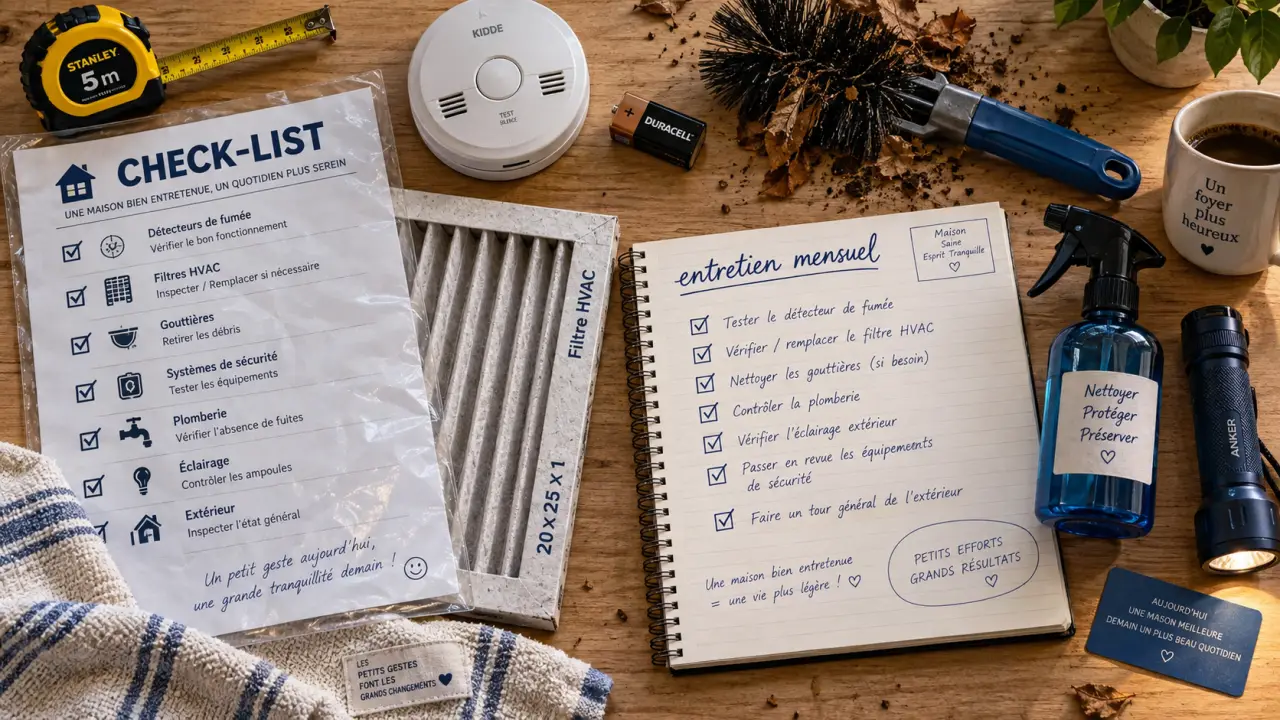 STANLEY
5 m
KIDDE
TEST
DURACELL
CHECK-LIST
UNE MAISON BIEN ENTRETENUE, UN QUOTIDIEN PLUS SEREIN
Détecteurs de fumée
Vérifier le bon fonctionnement
Filtres HVAC
Inspecter / Remplacer si nécessaire
Gouttières
Retirer les débris
Systèmes de sécurité
Tester les équipements
Plomberie
Vérifier l'absence de fuites
Éclairage
Contrôler les ampoules
Extérieur
Inspecter l'état général
Un petit geste aujourd'hui,
une grande tranquillité demain !
Filtre HVAC
20 x 25 x 1
LES
PETITS GESTES
FONT LES
GRANDS CHANGEMENTS
entretien mensuel
Maison
Saine
Esprit Tranquille
Tester le détecteur de fumée
Vérifier / remplacer le filtre HVAC
Nettoyer les gouttières (si besoin)
Contrôler la plomberie
Vérifier l'éclairage extérieur
Passer en revue les équipements
de sécurité
Faire un tour général de l'extérieur
Une maison bien entretenue
= une vie plus légère !
PETITS EFFORTS
GRANDS RÉSULTATS
Un
foyer
plus
heureux
Nettoyer
Protéger
Préserver
ANKER
AUJOURD'HUI
UNE MAISON MEILLEURE
DEMAIN UN PLUS BEAU QUOTIDIEN